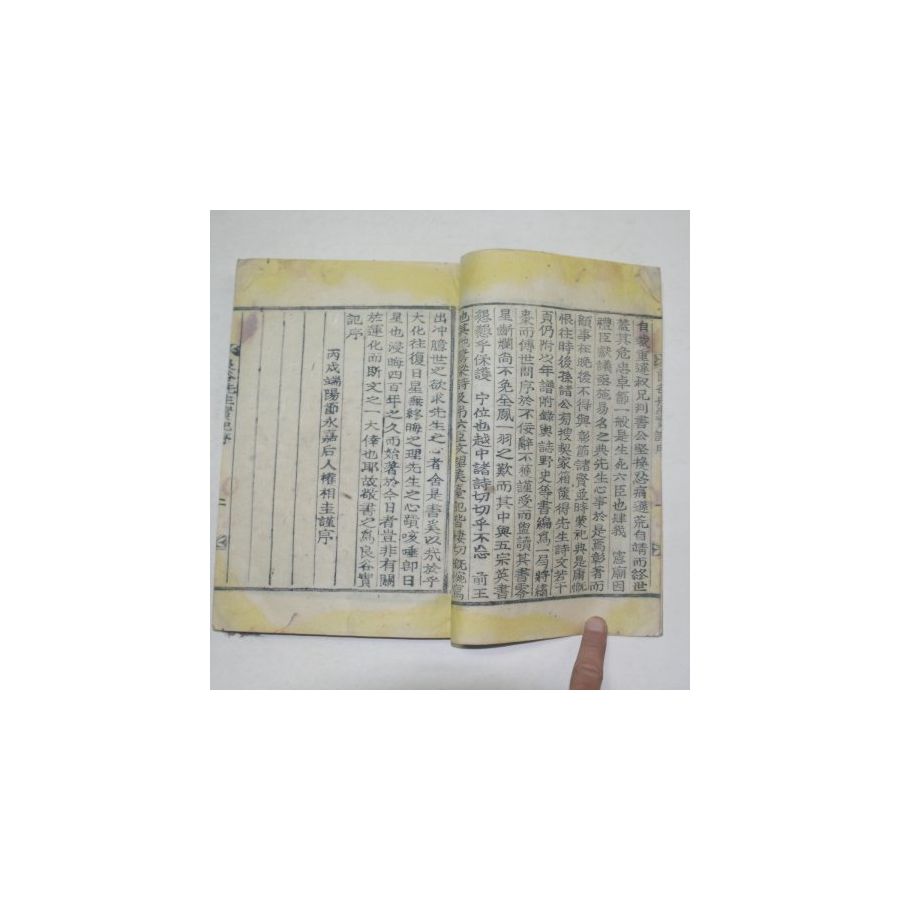 自裁重違叔兄判書公堅操忍痛遯荒自靖而終世
蓋其危忠卓節一般是生死六臣也肆我 憲廟因
禮臣獻議啓施易名之典先生心事於是焉彰著而
顧事在晚後不得與彰節諸賢並時蒙祀典是庸慨
恨往時後孫諸公蒐搜契家箱篋得先生詩文若干
頁仍附以年譜附錄輿誌野史等書編爲一局將繡
棗而傳世問序於不佞辭不獲謹受而盥讀其書零
星斷爛尚不免全鳳一羽之歎而其中與五宗英書
懇懇乎保護 宁位也越中諸詩切切乎不忘 前王
出冲膽世之欲求先生之心者舍是書奚以哉於乎
大化往復日星無終晦之理先生之心蹟咳唾卽日
星也浸晦四百年之久而始著於今日者豈非有關
於運化而斯文之一大倖也耶故敬書之爲良谷實
記序
丙戌端陽節永嘉后人權相圭謹序